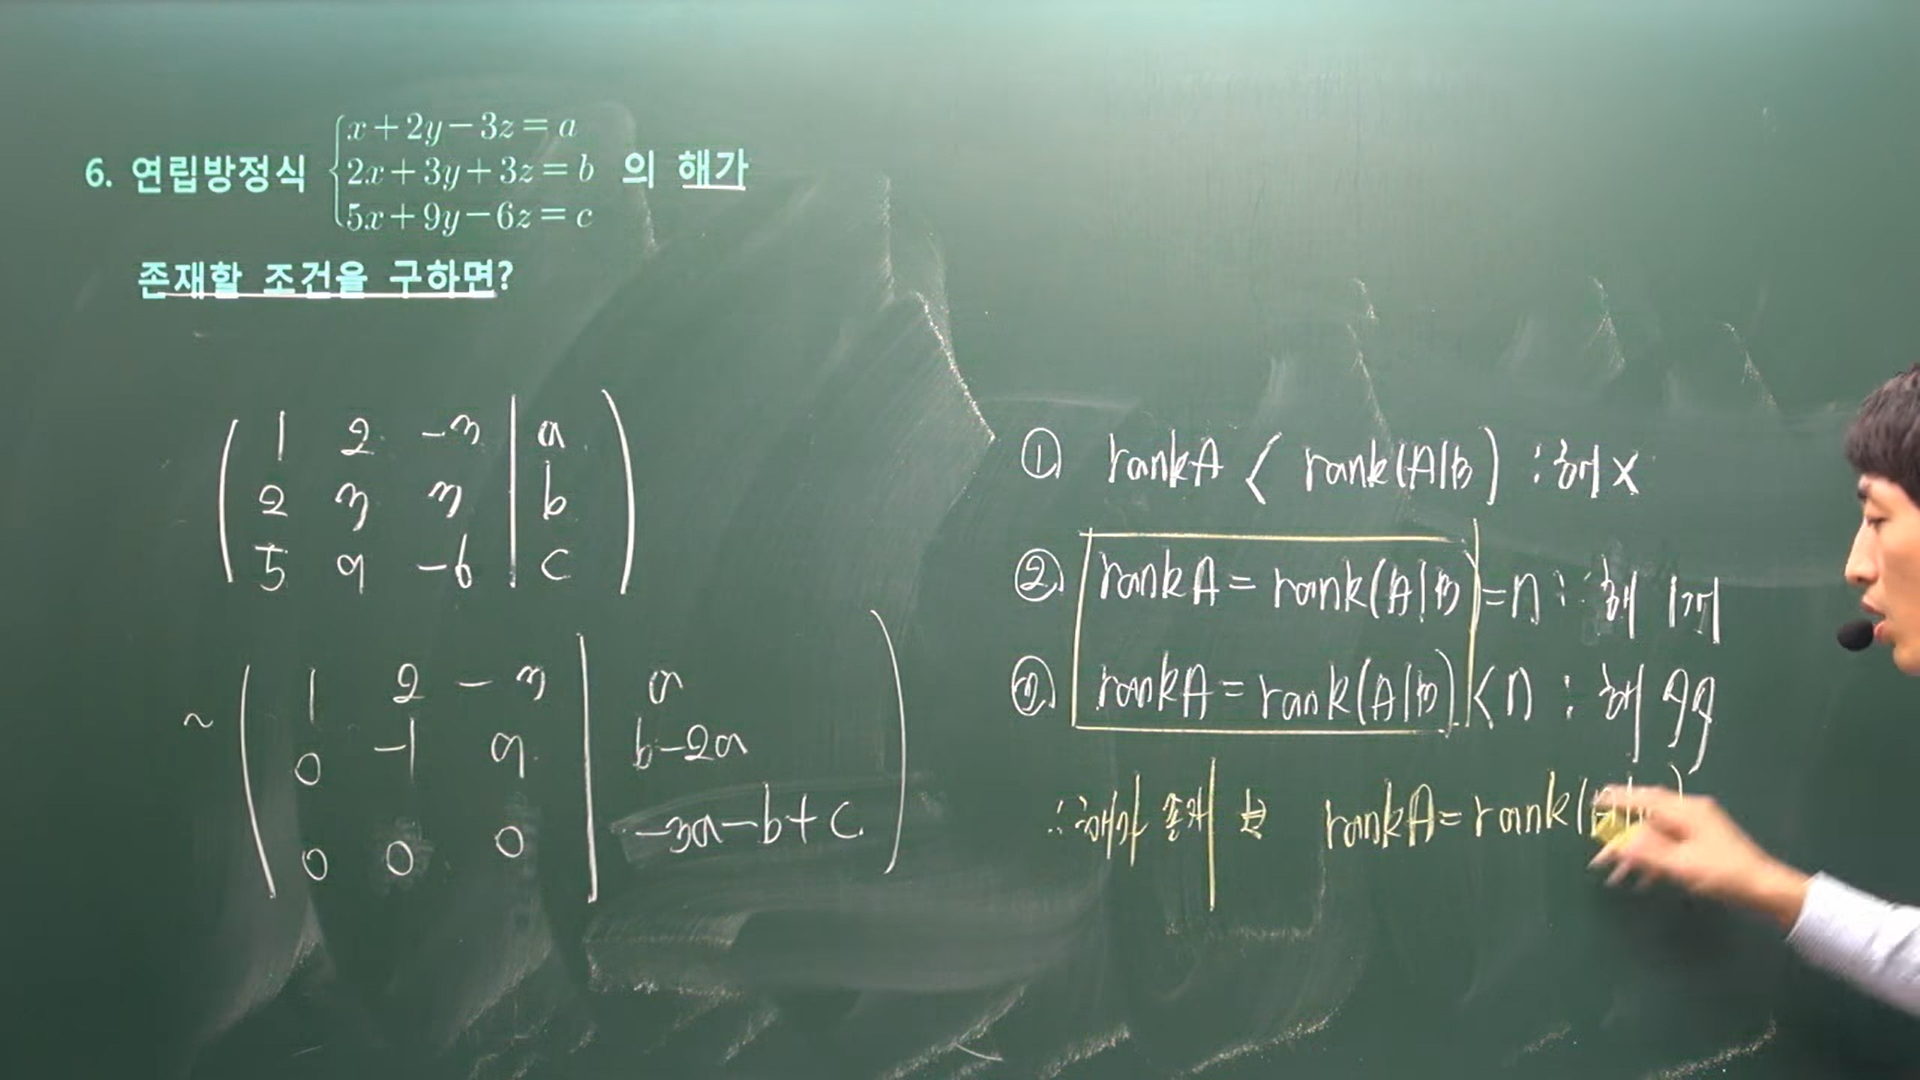 6. 연립방정식 { x+2y−3z=a
2x+3y+3z=b 의 해가
5x+9y−6z=c
존재할 조건을 구하면?
( 1 2 -3 | a )
2 3 3 | b
5 9 -6 | c
~ ( 1 2 -3 | a )
0 -1 9 | b-2a
0 0 0 | -3a-b+c
① rankA < rank(A|B) : 해 X
② rankA = rank(A|B) = n : 해 1개
③ rankA = rank(A|B) < n : 해
∴ 해가 존재 rankA = rank(A|B)